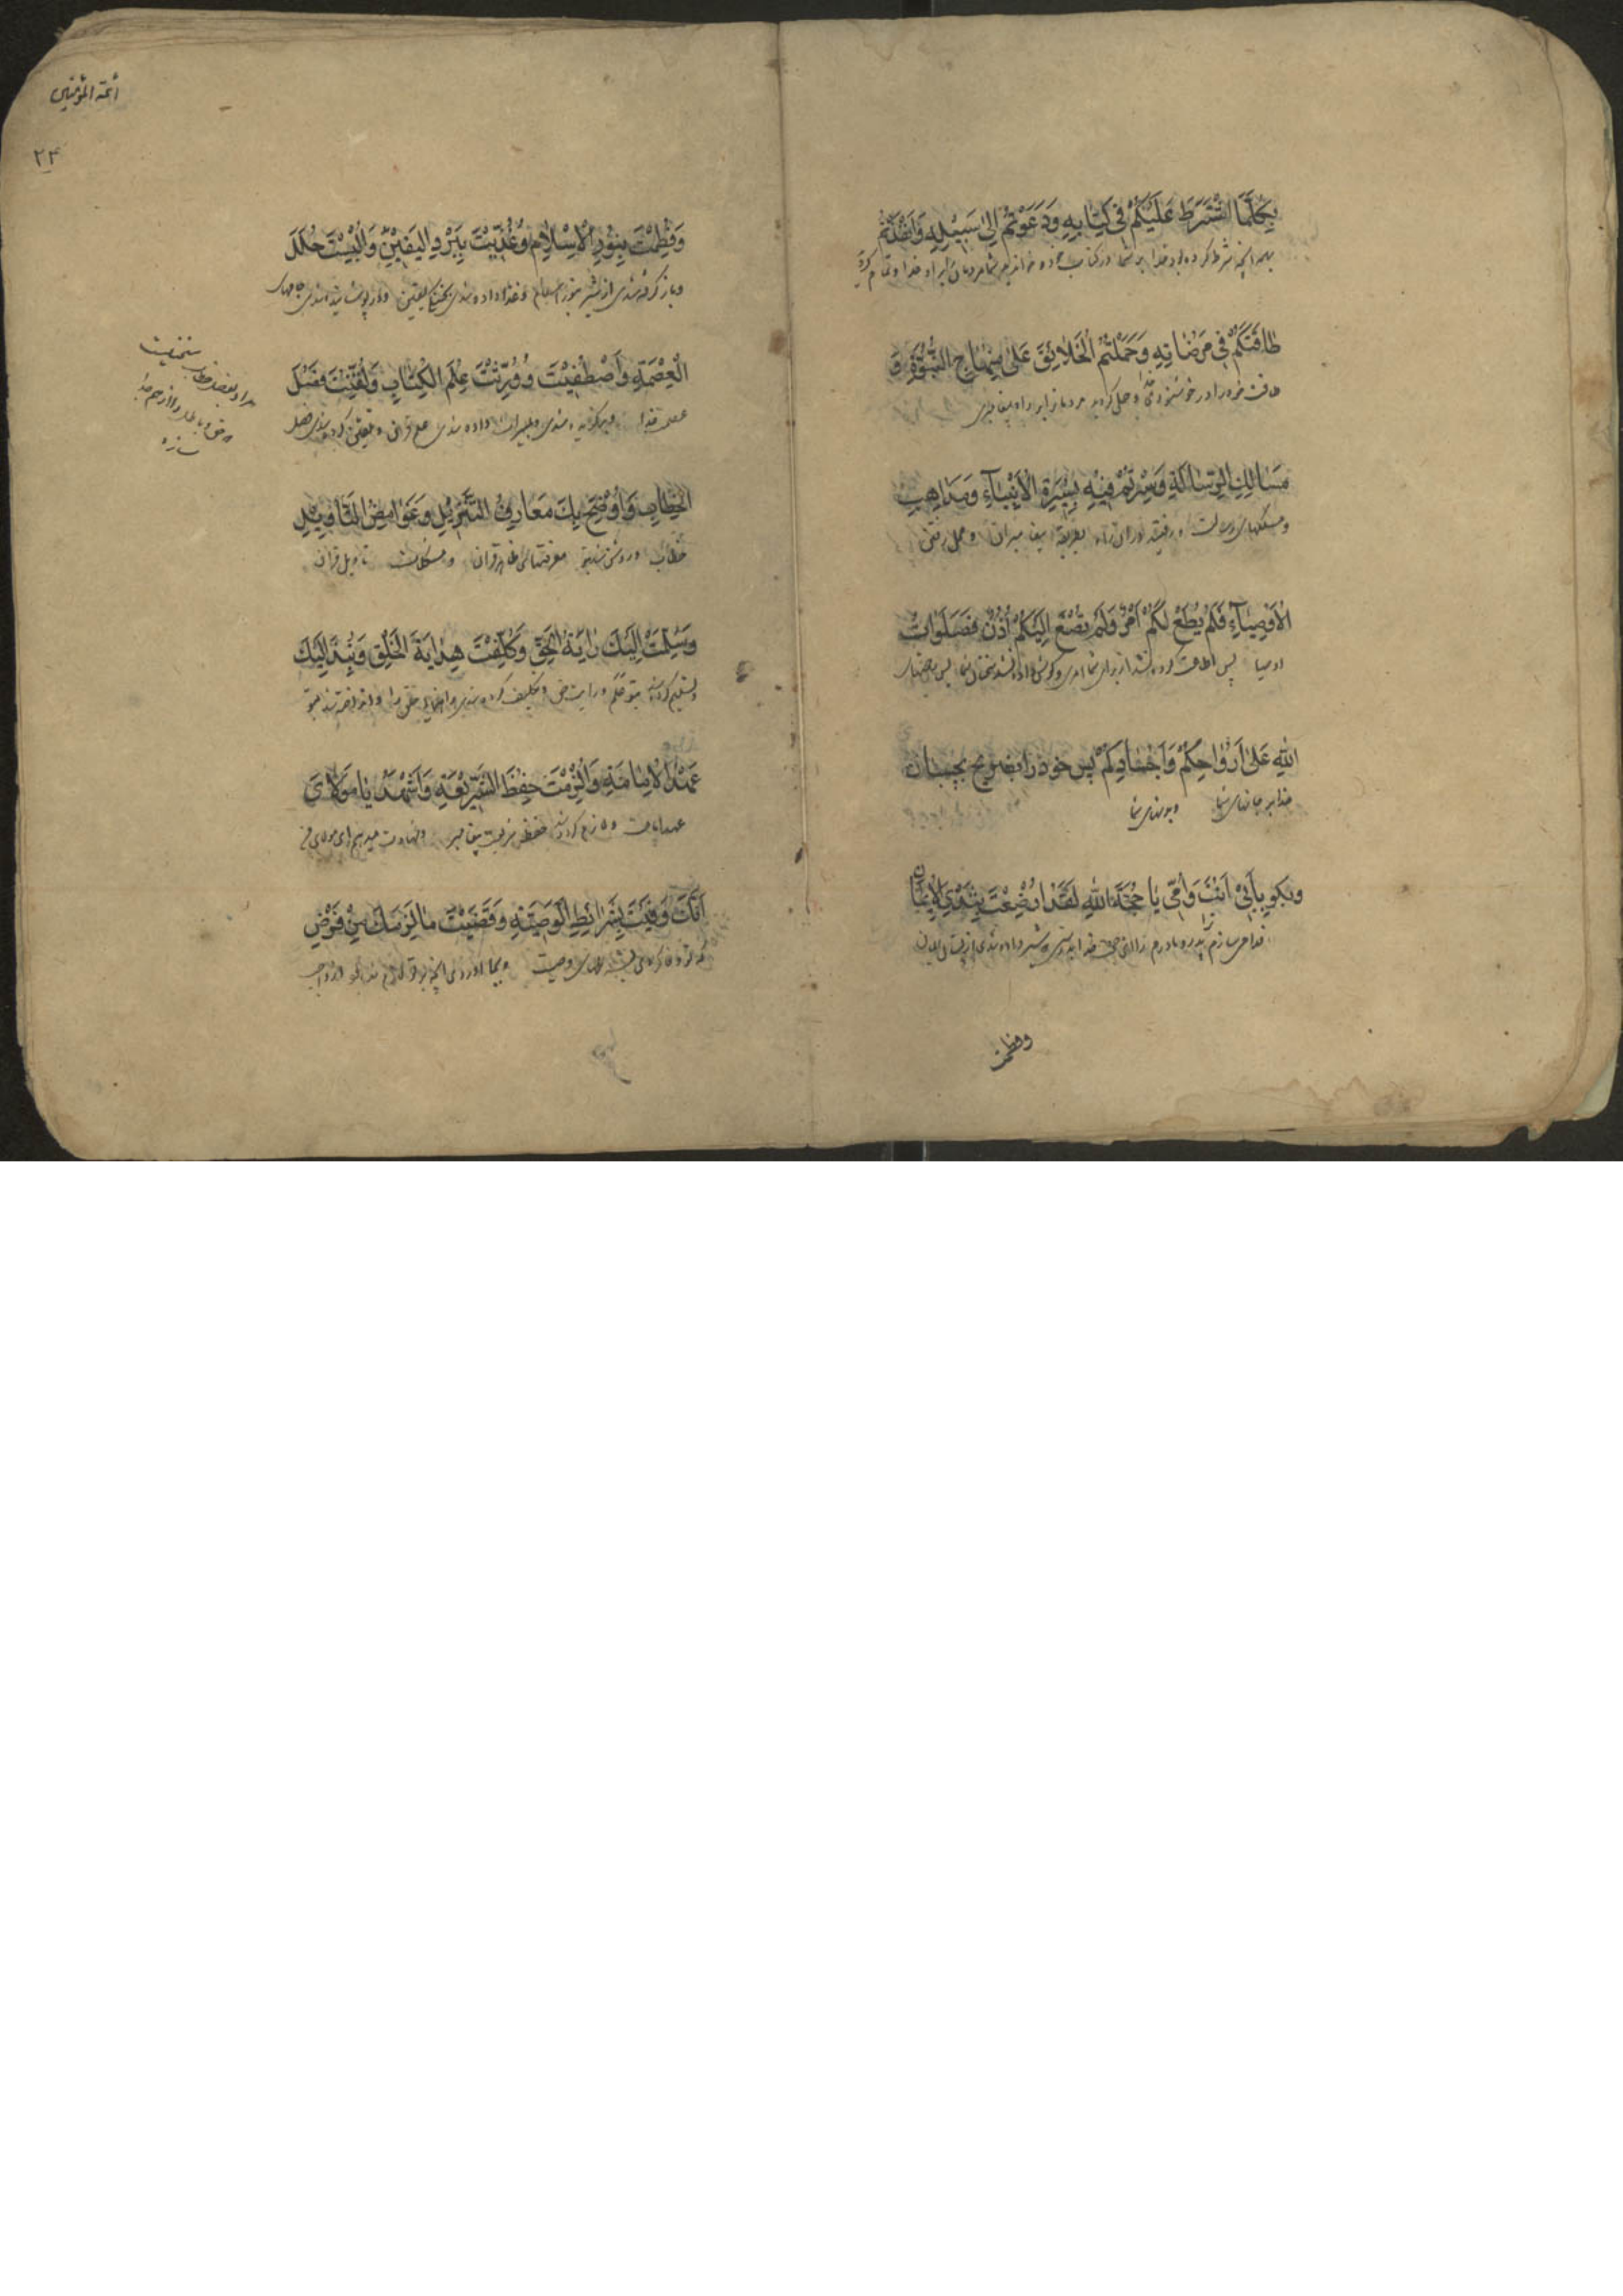 بِكُلِّمَا اشْتَرَطَ عَلَيْكُمْ فِي كِتَابِهِ وَدَعَوْتُمْ اِلىٰ سَبِيْلِهِ وَاَنْفَذْتُمْ
بهر انچه شرط کرده بود خدا بر شما در کتاب خود و خواندید شما مردمان را براه خدا و تمام کردید
طَاقَتَكُمْ فِي مَرْضَاتِهِ وَحَمَلْتُمُ الْخَلَائِقَ عَلىٰ مِنْهَاجِ النُّبُوَّةِ وَ
طاقت خود را در خوشنودی و حمل کردید مردمان را براه پیغامبری
مَسَالِكِ الرِّسَالَةِ وَسِرْتُمْ فِيْهِ بِسِيْرَةِ الْاَنْبِيَآءِ وَمَذَاهِبِ
و مسلکهای رسالت و رفتید در ان راه بطریقه پیغامبران و محل رفتن
الْاَوْصِيَآءِ فَلَمْ يُطَعْ لَكُمْ اَمْرٌ وَلَمْ تُصْغَ اِلَيْكُمْ اُذُنٌ فَصَلَوَاتُ
اوصیا پس اطاعت کرده نشد از برای شما امری و گوش داده نشد سخنان شما پس رحمتهای
اللهِ عَلىٰ اَرْوَاحِكُمْ وَاَجْسَادِكُمْ پس خود را بضریح بچسبان
خدا بر جانهای شما و بدنهای شما
وبکو بِاَبِيْ اَنْتَ وَاُمِّي يَا حُجَّةَ اللهِ لَقَدْ اُرْضِعْتَ بِثَدْيِ الْاِيْمَانِ
فدا می سازم پدر و مادرم را ای حجت خدا بدرستی که شیر داده شدی از پستان ایمان
وفطمت
ائمة المؤمنین
۲۴
وَفُطِمْتَ بِنُوْرِ الْاِسْلَامِ وَغُذِّيْتَ بِبَرْدِ الْيَقِيْنِ وَاُلْبِسْتَ حُلَلَ
و باز گرفته شدی از شیر بنور اسلام و غذا داده شدی بخنکی یقین و پوشانیده شدی جامهای
الْعِصْمَةِ وَاصْطُفِيْتَ وَوُرِّثْتَ عِلْمَ الْكِتَابِ وَلُقِّنْتَ فَصْلَ
عصمت خدا و برگزیده شدی و میراث داده شدی علم قران و تلقین کرده شدی فصل
الْخِطَابِ وَاُوْضِحَ بِكَ مَعَارِفُ التَّنْزِيْلِ وَغَوَامِضُ التَّأْوِيْلِ
خطاب و روشن شد بتو معرفتهای ظاهر قران و مشکلات تاویل قران
وَسُلِّمَتْ اِلَيْكَ رَايَةُ الْحَقِّ وَكُلِّفْتَ هِدَايَةَ الْخَلْقِ وَنُبِذَ اِلَيْكَ
و تسلیم کرده شد بتو علم و رایت حق و تکلیف کرده شدی راهنمایی خلق خدا و انداخته شد بتو
عَهْدُ الْاِمَامَةِ وَاُلْزِمْتَ حِفْظَ الشَّرِيْعَةِ وَاَشْهَدُ يَا مَوْلَايَ
عهد امامت و لازم کرده شد حفظ شریعت پیغامبر و شهادت میدهم ای مولای من
اَنَّكَ وَفَيْتَ بِشَرَائِطِ الْوَصِيَّةِ وَقَضَيْتَ مَا لَزِمَكَ مِنْ فَرْضِ
که تو وفا کردی بشرطهای وصیت و بجا اوردی انچه بر تو لازم شد
مراد بفصل خطاب سخنیست
که حق و باطل را از هم جدا
سازد